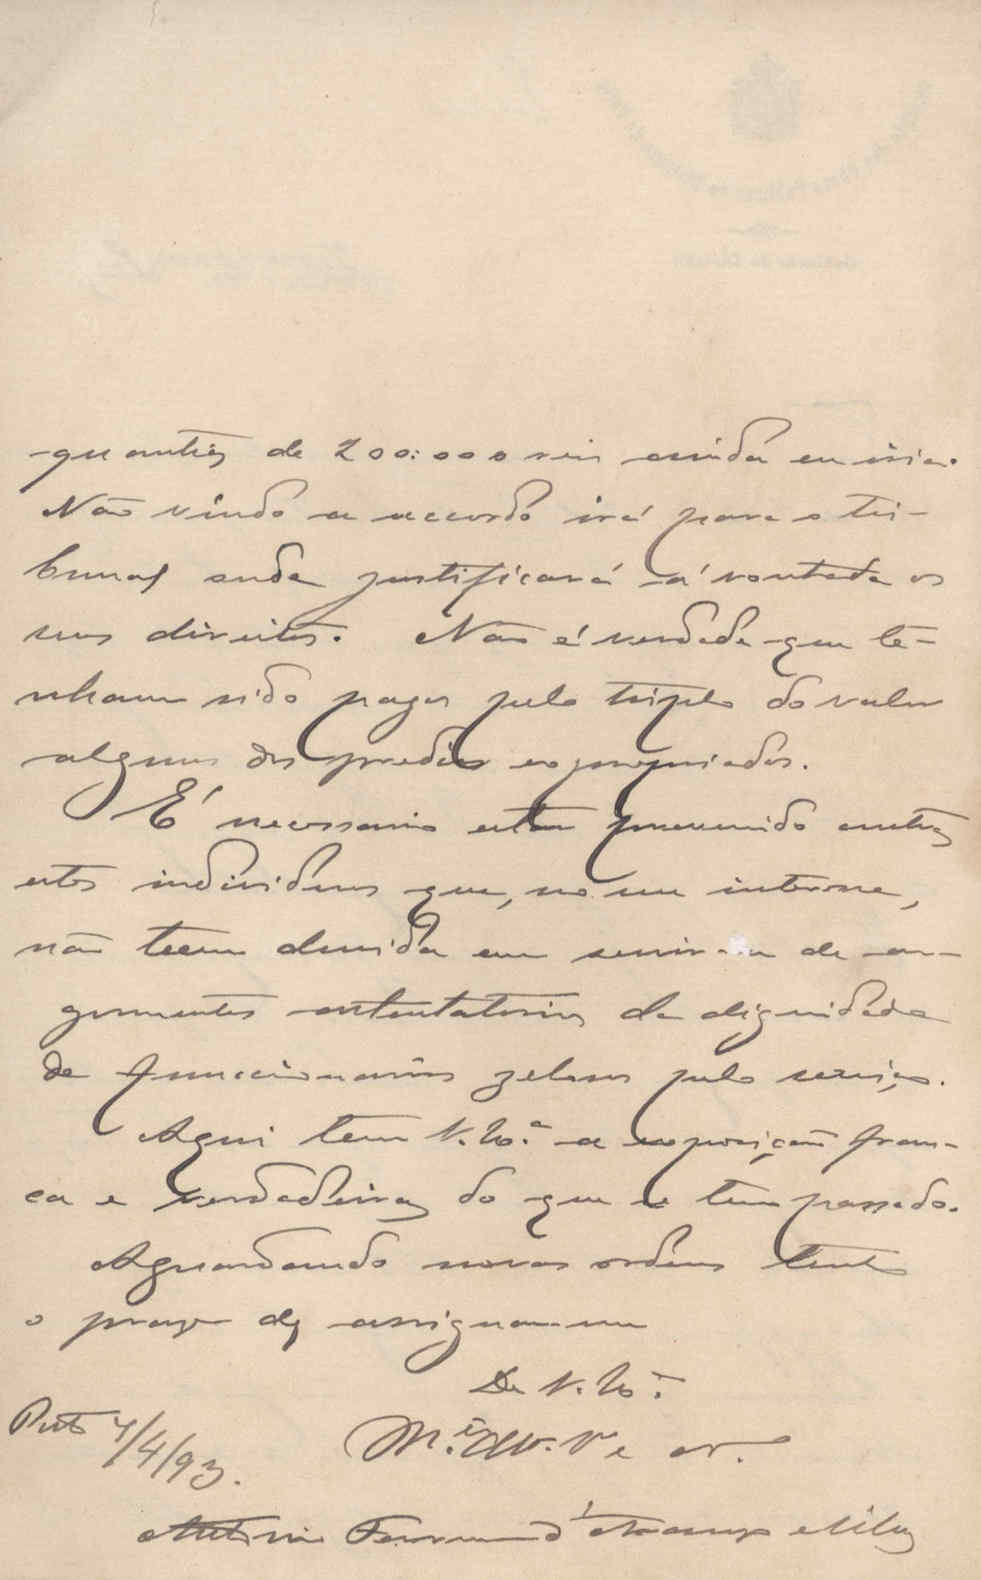 quantia de 200:000 reis ainda em cima.
Não vindo a accordo irá para o tri-
bunal onde justificará á vontade os
seus direitos. Não é verdade que te-
nham sido pagos pelo triplo do valor
alguns dos predios expropriados.
É necessario estar prevenido contra
estes individuos que, no seu interesse,
não teem duvida em servir-se de ar-
gumentos attentatorios da dignidade
de funccionarios zelosos pelo serviço.
Aqui tem V. Ex.ª a exposição fran-
ca e verdadeira do que se tem passado.
Aguardando novas ordens tenho
o prazer de assignar-me
De V. Ex.ª
M.to At.º V.or e
Porto 4/4/93.
Antonio Ferreira d'Araujo e Silva